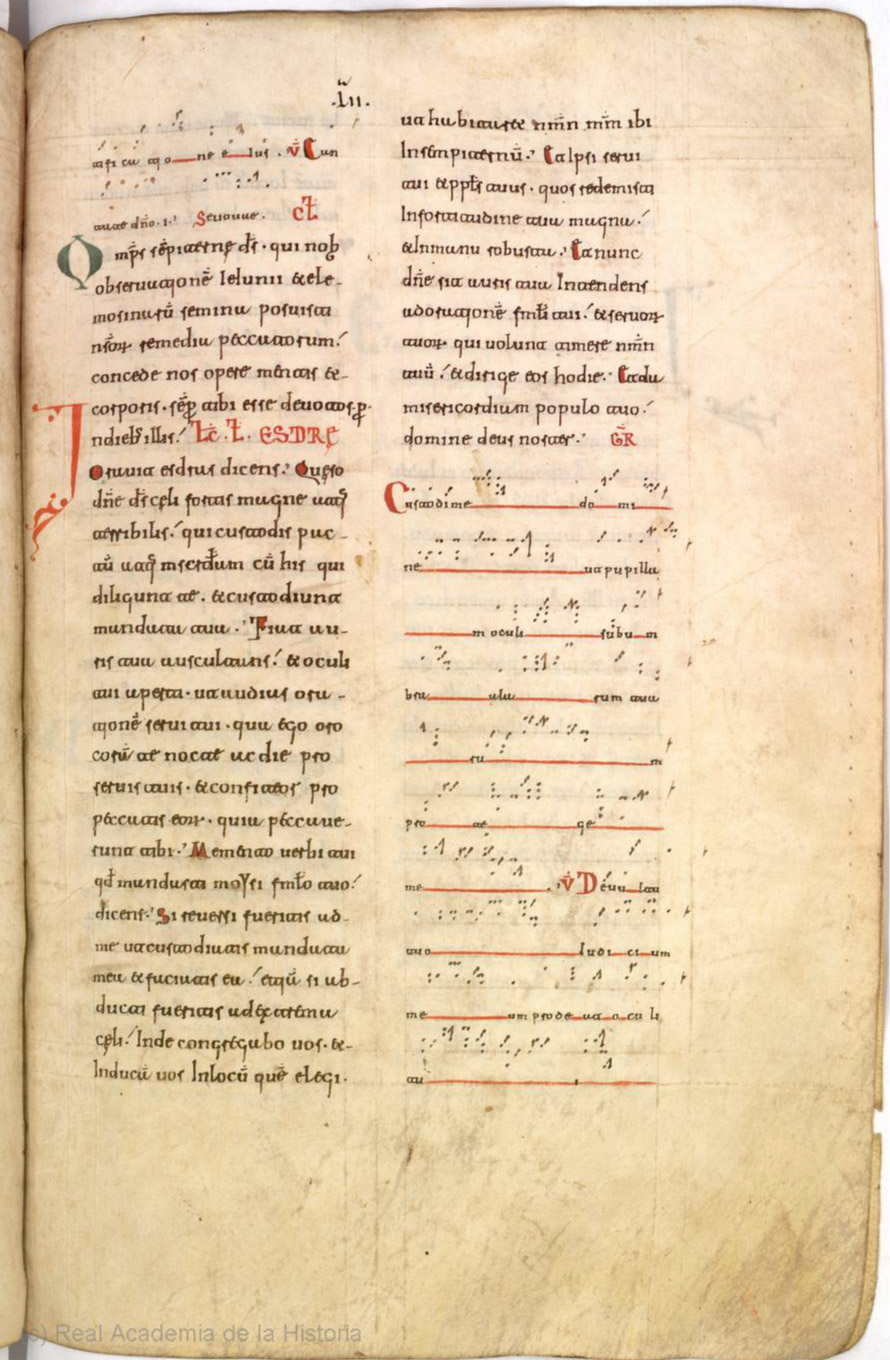 .Lii.
tificatio ne eius . V Can
tate dno .i. Seuouae. CŁ
Omps sēpiterne ds · qui nob
obseruationē Ieiunii & ele-
mosinarū semina posuisti
nsor̄ remedia peccatorum.
concede nos opere mentis &
corporis · sēp tibi esse deuotos · p
In dieb illis. Lc̄. L. ESDRĘ
Orauit esdras dicens. Queso
dn̄e ds cęli fortis magne atq
terribilis. qui custodis pac-
tū atq mscrdam cū his qui
diligunt te. & custodiunt
mandata tua. Fiat au-
ris tua auscultans. & oculi
tui aperti · ut audias ora-
tionē serui tui · qua ego oro
corā te nocte ac die pro
seruis tuis · & confiteor pro
peccatis eor̄ · quia peccaue-
runt tibi. Memento uerbi tui
qd mandasti moysi fmlo tuo
dicens. Si reuersi fueritis ad
me ut custodiatis mandata
mea & faciatis ea. etiā si ab-
ducti fueritis ad extrema
cęli. Inde congregabo uos · &
Inducā uos In locū quē elegi ·
ut habitaret nm̄n mm̄ ibi
In sempiternū. Et ipsi serui
tui & ppls tuus · quos redemisti
In fortitudine tua magna.
& In manu robusta. Et nunc
dn̄e sit auris tua Intendens
ad orationē fmli tui. & seruor̄
tuor̄ qui uolunt timere nm̄n
tuū. & dirige eos hodie. Et da
misericordiam populo tuo.
domine deus noster. GR
Custodi me do mi
ne ut pupilla
m oculi sub um
bra ala rum tua
ru m
pro te ge
me . V De uultu
tuo iudi ci um
me um prode at o cu li
tu i
(c) Real Academia de la Historia